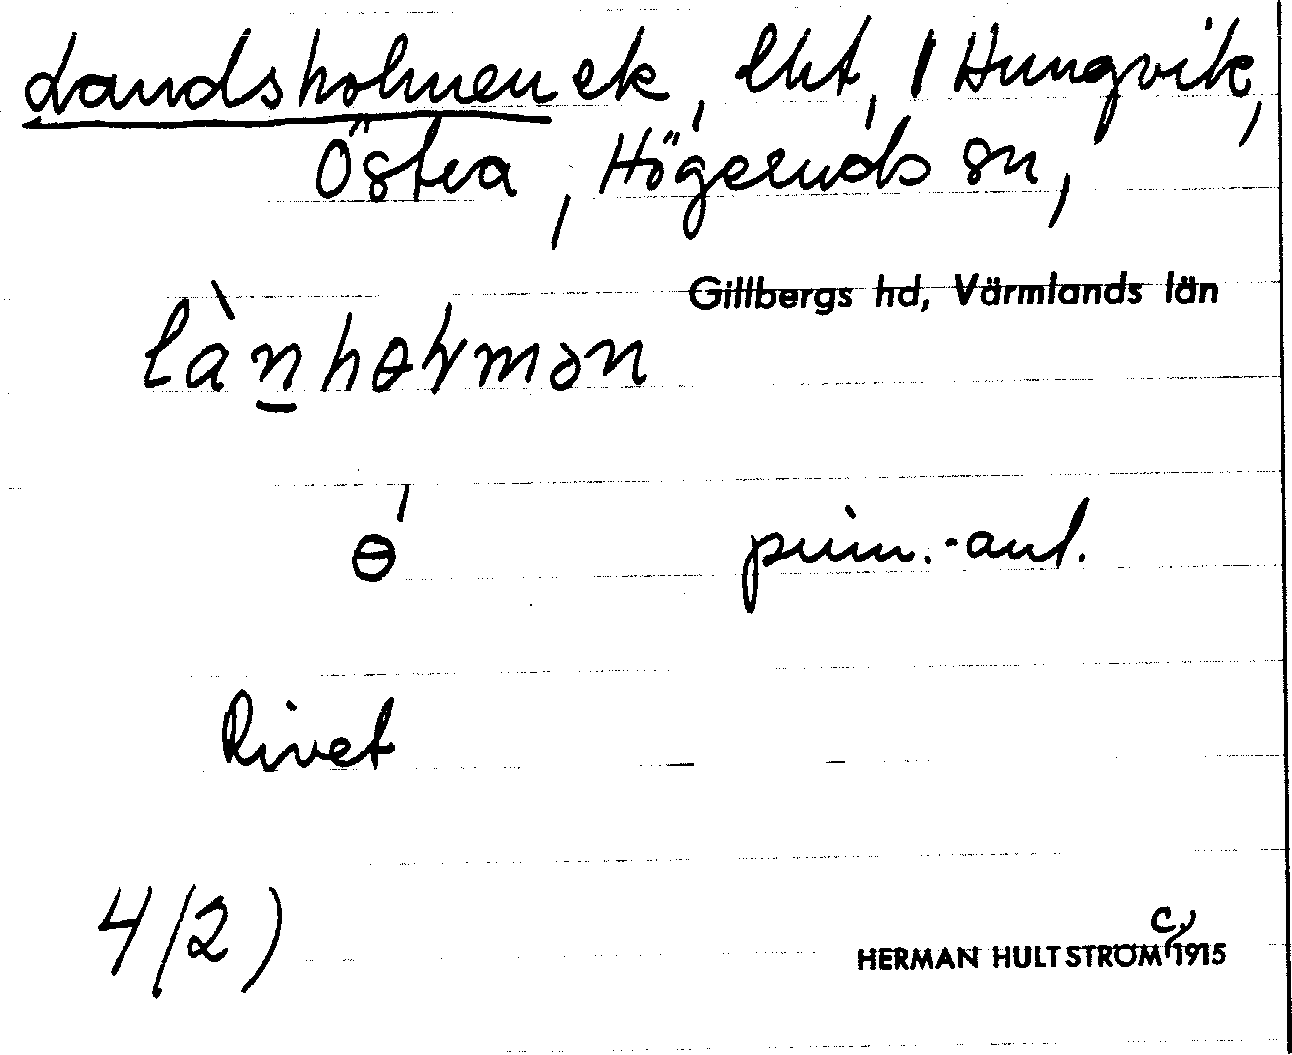 Landsholmen ek, lht, i Hungvik,
Östra, Högeruds sn,
Gillbergs hd, Värmlands län
là̀n̲hɵɫmən
ɵ́ prim.-ant.
Rivet
4/2)
HERMAN HULTSTRÖM c. 1915